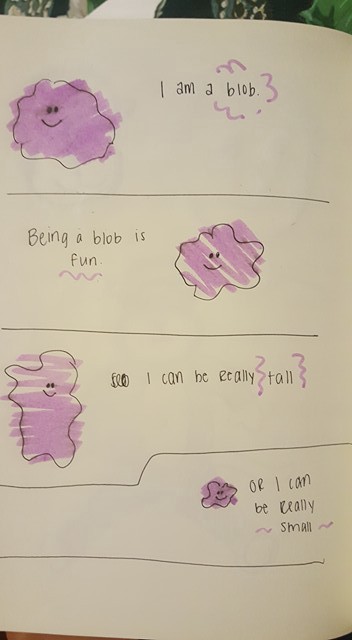 I am a blob.
Being a blob is
fun.
I can be really tall
OR I can
be really
~ small ~